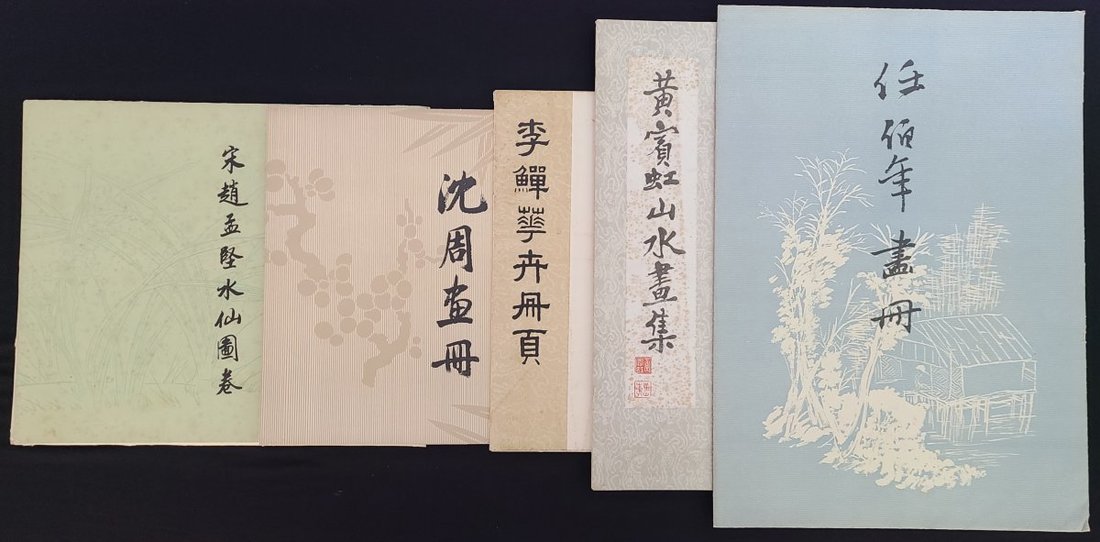 宋趙孟堅水仙圖卷
沈周画冊
李鱓華卉冊頁
黃賓虹山水畫集
任伯年畫冊